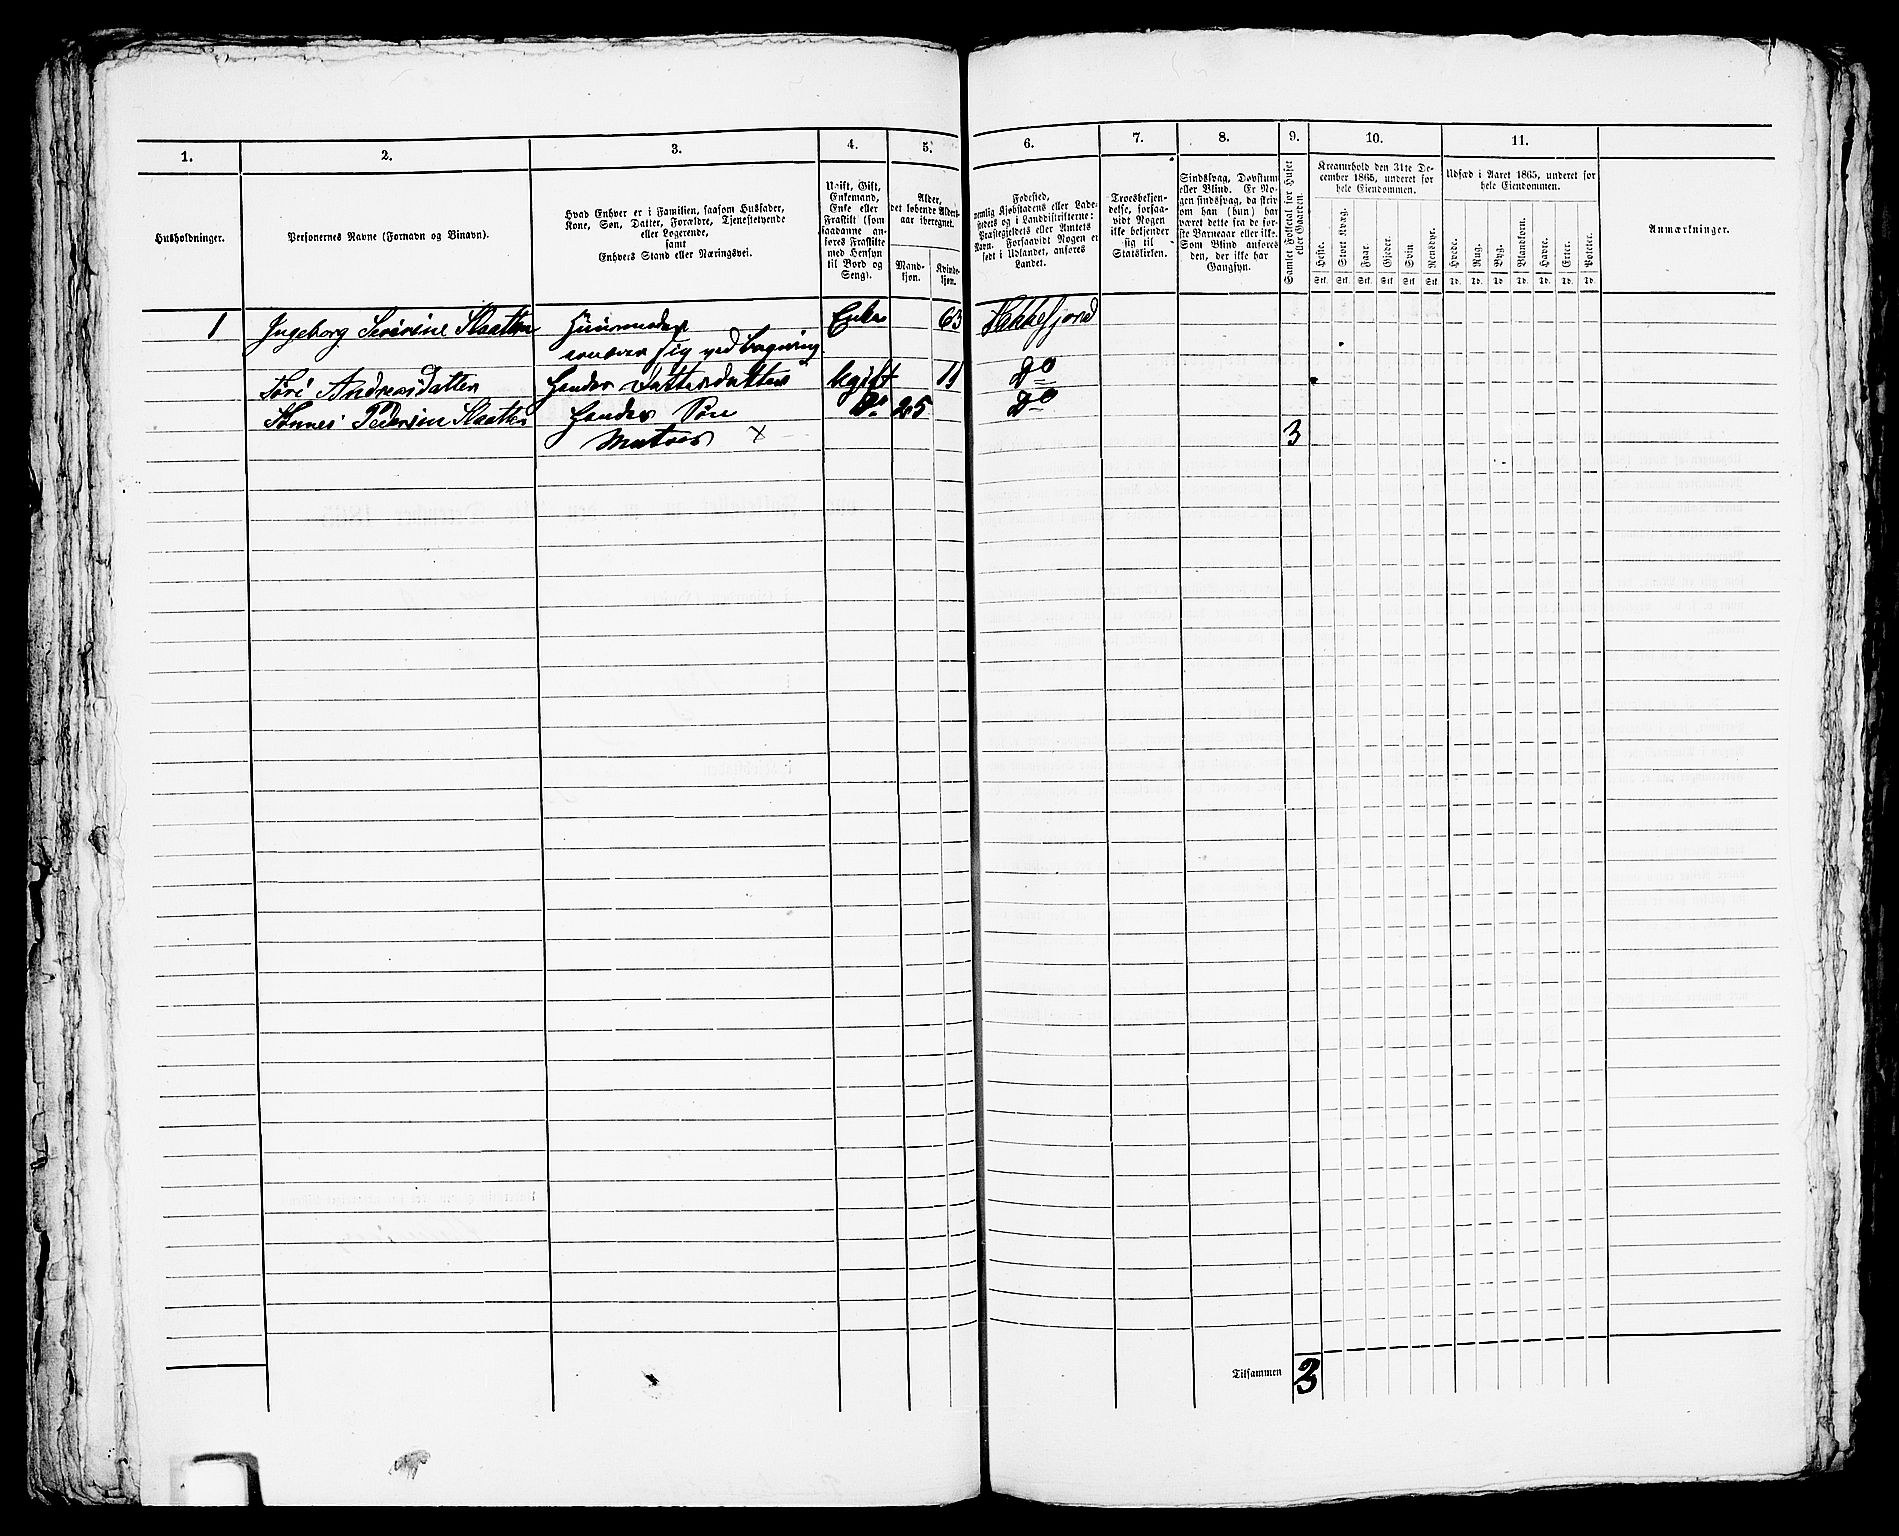 1. 2. 3. 4. 5. 6. 7. 8. 9. 10. 11.
Husholdninger.
Personernes Navne (Fornavn og Binavn).
Hvad Enhver er i Familien, saasom Husfader,
Kone, Søn, Datter, Forældre, Tjenestetyende
eller Logerende,
samt
Enhvers Stand eller Næringsvei.
Ugift, Gift,
Enkemand,
Enke eller
Fraskilt (som
saadanne an-
føres Fraskilte
med Hensyn
til Bord og
Seng).
Alder,
det løbende Alders-
aar iberegnet.
Mand-
kjøn.
Kvinde-
kjøn.
Fødested,
nemlig Kjøbstadens eller Lade-
stedets og i Landdistrikterne:
Præstegjeldets eller Amtets
Navn. Forsaavidt Nogen er
født i Udlandet, anføres
Landet.
Troesbekjen-
delse, forsaa-
vidt Nogen
ikke bekjender
sig til
Statskirken.
Sindssvag, Døvstum
eller Blind. Er No-
gen sindssvag, da skriv
om han (hun) har
været dette fra de før-
ste Barneaar eller ikke.
Som Blind anføres
den, der ikke har
Gangsyn.
Samlet Folketal for Huset
eller Gaarden.
Kreaturhold den 31te De-
cember 1865, underet for
hele Eiendommen.
Heste. Stort Kvæg. Faar. Gjeder. Svin Rensdyr.
Stk. Stk. Stk. Stk. Stk Stk
Udsæd i Aaret 1865, underet for
hele Eiendommen.
Hvede. Rug. Byg. Blandkorn. Havre. Erter. Poteter.
Td. Td. Td Td. Td. Td. Td.
Anmærkninger.
1 Ingeborg Severine Slaatten Huusmoder Enke 63 Flekkefjord
sig ved
Andreasdatter Hendes Datterdatter Ugift 11 Do
Tønnes Pedersen Slaatten Hendes Søn Do 25 Do
Matros × 3
Tilsammen 3